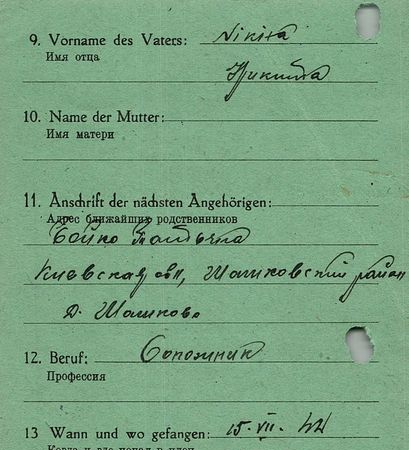 9. Vorname des Vaters: Nikita
Имя отца
Никита
10. Name der Mutter:
Имя матери
11. Anschrift der nächsten Angehörigen:
Адрес ближайших родственников
Бойко
Киевская обл, Машковский район
д. Машково
12. Beruf: Сапожник
Профессия
13 Wann und wo gefangen: 15. VII. 42